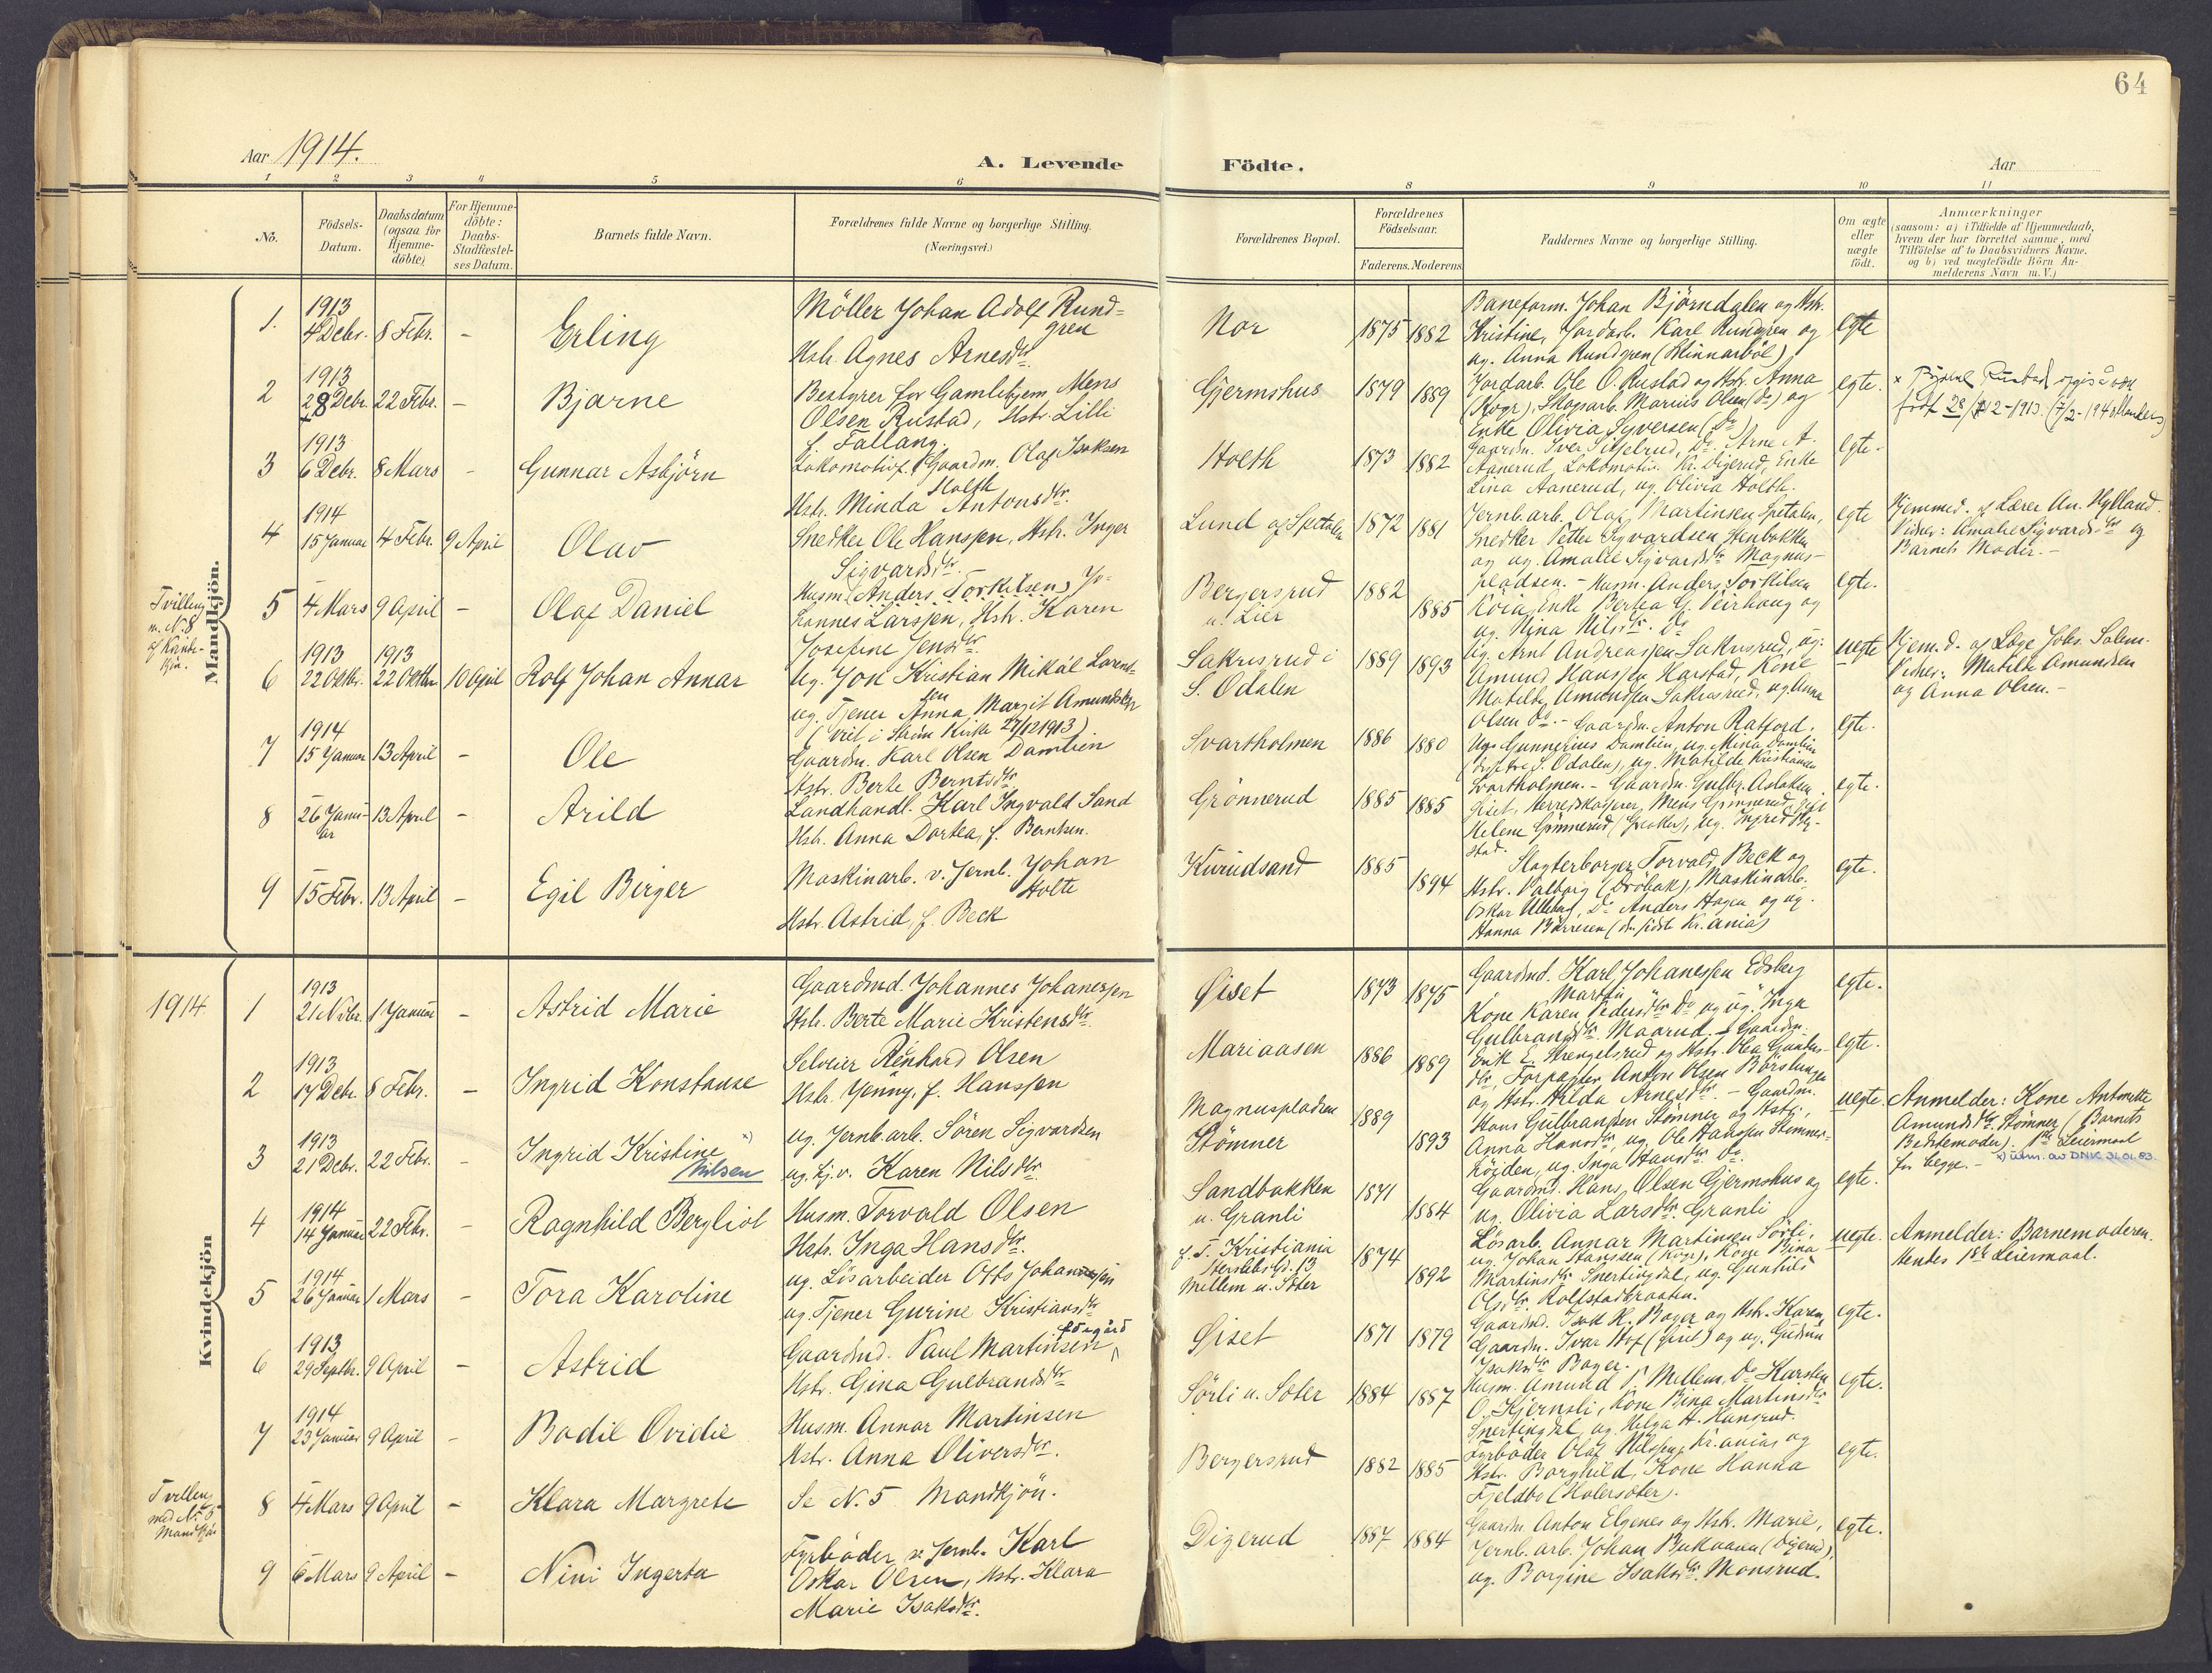 64
Aar 1914.
A. Levende
Födte.
Aar
1 2 3 4 5 6
8 9 10 11
No.
Födsels-
Datum.
Daabsdatum
(ogsaa for
Hjemme-
döbte)
For Hjemme-
döbte:
Daabs-
Stadfæstel-
ses Datum.
Barnets fulde Navn.
Forældrenes fulde Navne og borgerlige Stilling.
(Næringsvei.)
Forældrenes Bopæl.
Forældrenes
Födselsaar.
Faderens. Moderens
Faddernes Navne og borgerlige Stilling.
Om ægte
eller
uægte
födt.
Anmærkninger
(saasom: a) i Tilfælde af Hjemmedaab,
hvem der har forrettet samme, med
Tilföielse af to Daabsvidners Navne.
og b) ved uægtefödte Börn An-
melderens Navn m. V.)
Mandkjön.
1. 1913
4 Debr. 8 Febr. - Erling
Möller Johan Adolf Rund=
gren
Hstr. Agnes Arnesdtr.
Nor 1875 1882
Baneform. Johan Björndalen og Hstr.
Kristine, Jordarb. Karl Rundgren og
ug. Anna Rundgren (Skinnarböl)
egte
2 1913
28 Debr. 22 Febr. - Bjarne
Bestyrer for Gamlehjem Mens
Olsen Rustad, Hstr. Lilli
f. Fallang.
Gjermshus 1879 1889
Jordarb. Ole O. Rustad og Hstr. Anna
(Kogr), Skoparb. Marius Olsen (Do) og
Enke Olivia Syversen (Do)
egte.
x Bjarne Rustad
født 28/12-1913. (7/2-1940
3 1913
6 Debr. 8 Mars - Gunnar Asbjörn
Lokomotivf. Gaardm. Olaf Isaksen
Holth
Hstr. Minda Antonsdtr.
Holth 1873 1882
Aanerud, Lokomotiv. Kr. Digerud, Enke
Lina Aanerud, ug. Olivia Holth.
egte.
4 1914
15 Januar 4 Febr. 9 April Olav
Snedker Ole Hansen, Hstr. Inger
Sigvardsdtr.
Lund af Spetalen 1872 1881
Jernb.arb. Olaf Martinsen Spetalen,
Snedker Petter Sigvardsen Stenbakken
og ug. Amalie Sigvardsdtr. Magnus-
pladsen.
egte
Hjemmed. af Lærer An. Hylland.
Vidner: Amalie Sigvardsdtr. og
Barnets Moder. -
Tvilling
m. No. 8
af Kvinde-
kjön.
5 4 Mars 9 April - Olaf Daniel
Husm. (Anders Torkilsen) Jo-
hannes Larssen, Hstr. Karen
Josefine Jensdtr.
Bergersrud
u. Lier 1882 1885
- Husm. Anders Torkilsen
Enke Bertea G. Veirhaug og
ug. Nina Nilsdtr. Do
egte.
6 1913 1913
22 Oktbr. 22 Oktbr. 10 April Rolf Johan Annar
Ug. Jon Kristian Mikal Lorent-
sen
ug. Tjener Anna Margit Amundsen
(viet i Ström Kirke 27/12 1913)
Sakrisrud i
S. Odalen 1889 1893
Ug. Arnt Andreassen Sakrisrud, ug.
Amund Hanssen Harstad, Kone
Matilde Amundsen Sakrisrud, ug. Anna
Olsen Do. -
uegte
Hjemd. af Læge Johs. Salem-
Vidner: Matilde Amundsen
og Anna Olsen. -
7 1914
15 Januar 13 April - Ole
Gaardm. Karl Olsen Damlien
Hstr. Berte Berntsdtr.
Svartholmen 1886 1880
Gaardm. Anton Ratford.
Ug. Gunnerius Damlien, ug. Mina Damlien
S. Odalen), ug. Matilde Kristiansen
Svartholmen. -
egte.
8 26 Janu-
ar 13 April - Arild
Landhandl. Karl Ingvald Sand
Hstr. Anna Dortea, f. Berntsen.
Grönnerud 1885 1885
Gaardm. Gulbr. Aslaksen
Öiset, Herredskasserer, Mens Grönnerud,
Helene Grönnerud
stad.
egte.
9 15 Febr. 13 April - Egil Birger
Maskinarb. v. Jernb. Johan
Holte
Hstr. Astrid, f. Beck
Kurudsand 1885 1894
Slagterborger Torvald Beck og
Hstr. Valborg (Dröbak), Maskinarb.
Oskar Ulleberg, Do Anders Hagen og ug.
Hanna Börresen (de sidste Kr.ania)
egte.
Kvindekjön
1914
1 1913
21 Novbr. 1 Januar - Astrid Marie
Gaardmd. Johannes Johanessen
Hstr. Berte Marie Kristensdtr.
Öiset 1873 1875
Gaardmd. Karl Johanessen Edsberg
Martin
Kone Karen Pedersdtr. Do og ug. Inga
Gulbrandsdtr. Maarud.
egte.
2 1913
17 Debr. 8 Febr. - Ingrid Konstanse
Selveier Renhard Olsen
Hstr. Jenny, f. Hanssen
Mariaasen 1886 1889
Gaardm.
Erik E. Strengelsrud og Hstr. Olea Gunders-
dtr., Forpagter Anton Olsen Börslungen
og Hstr. Hilda Arnesdtr. -
egte.
3 1913
21 Debr. 22 Febr. - Ingrid Kristine x)
Nilsen
ug. Jernb.arb. Sören Sigvardsen
ug. hj.v. Karen Nilsdtr.
Magnuspladsen
Stömner 1889 1893
Gaardm.
Hans Gulbrandsen Stömner og Hstr.
Anna Hansdtr., ug. Ole Hanssen Stömner-
höiden, ug. Inga Hansdtr. Do.
uegte.
Anmelder: Kone Antonette
Amundsdtr. Stömner (Barnets
Bedstemoder). 1ste Leiermaal
for begge. -
x) utm. av DNK 31.01.83.
4 1914
14 Januar 22 Febr. - Ragnhild Bergliot
Husm. Torvald Olsen
Hstr. Inga Hansdtr.
Sandbakken
u. Granli 1871 1884
Gaardmd. Hans Olsen Gjermshus og
ug. Olivia Larsdtr. Granli
egte.
5 1914
26 Januar 1 Mars - Tora Karoline
ug. Lösarbeider Otto Johannessen
ug. Tjener Gurine Kristiansdtr.
f. T. Kristiania
Herslebsgd. 13
Mellem u. Söter 1874 1892
Lösarb. Annar Martinsen Sörli,
ug. Johan Hanssen (Kogr), Kone Bina
Martinsdtr. Snertingdal, ug. Gunhild
Olsdtr. Rolfstadbraaten.
uegte.
Anmelder: Barnemoderen.
Hendes 1ste Leiermaal.
6 1913
29 Septbr. 9 April - Astrid
Gaardmd. Paul Martinsen
Hstr. Gina Gulbrandsdtr.
Öiset 1871 1879
Gaardmd. Isak H. Bager og Hstr. Karen,
Gaardm. Ivar Hof (Grue) og ug. Gudrun
Isaksdtr. Bager.
egte.
7 1914
23 Januar 9 April - Bodil Ovidie
Husm. Annar Martinsen
Hstr. Anna Oliversdtr.
Sörli u. Söter 1884 1887
Husm. Amund P. Mellem, Do Karsten
O. Kjernsli, Kone Bina Martinsdtr.
Snertingdal, ug. Helga A. Kangrud.
egte.
Tvilling
med No. 5
Mandkjön
8 4 Mars 9 April - Klara Margrete
Se N. 5 Mandkjön.
Bergersrud 1882 1885
Fyrböder Olaf Nilssen, Kr.ania, og
Hstr. Borghild, Kone Hanna
Fjeldbo (Holersöter).
egte.
9 6 Mars 9 April - Nini Ingerta
Fyrböder v. Jernb. Karl
Oskar Olsen, Hstr. Klara
Marie Isaksdtr.
Digerud 1887 1884
Gaardm. Anton Elgenes og Hstr. Marie,
Jernb.arb. Johan (Digerud),
ug. Borgine Isaksdtr. Monsrud.
egte.